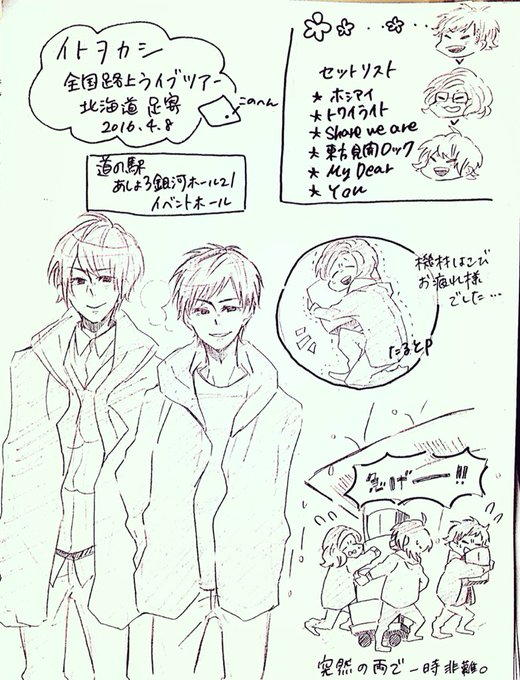 イトヲカシ
全国路上ライブツアー
北海道 足寄
2016.4.8
このへん
道の駅
あしょろ銀河ホール21
イベントホール
セットリスト
★ ホシアイ
★ トワイライト
★ share we are
★ 東方見聞ロック
★ My Dear
★ You
機材はこび
お疲れ様
でした…
なるとP
急げーー!!
突然の雨で一時非難。